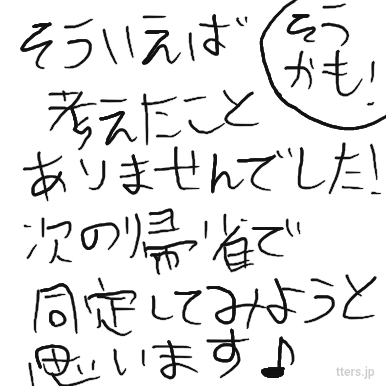 そういえば
考えたこと
ありませんでした!
次の帰省で
同定してみようと
思います♪
そう
かも!
tters.jp